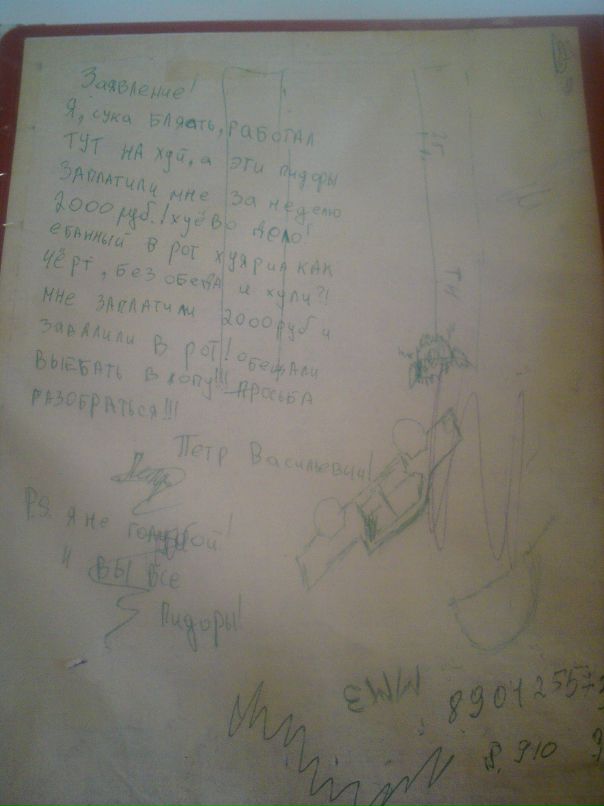 Заявление!
Я, сука блять, РАБОТАЛ
ТУТ НА хуй, а эти пидоры
ЗАПЛАТИЛИ мне за неделю
2000 руб.! хуёво дело!
ебанный в рот хуярил как
чёрт, без обеда и хули?!
мне ЗАПЛАТИЛИ 2000 руб и
завалили в рот! обещали
выебать в жопу!!! просьба
РАЗОБРАТЬСЯ!!!
Петр Васильевич!
P.S. я не голубой!
и вы все
Пидоры!
ТН
ММЗ
8.910